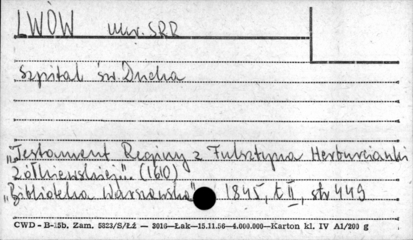 LWÓW Ukr. SRR
Szpital św. Ducha
„Testament Reginy z Fulsztyna Herburcianki
Żółkiewskiej" (1610)
„Biblioteka Warszawska" 1845, t. II, str 449
CWD - B-15b, Zam. 5823/S/Łż — 3016—Łak—15.11.56—4.000.000—Karton kl. IV A1/200 g